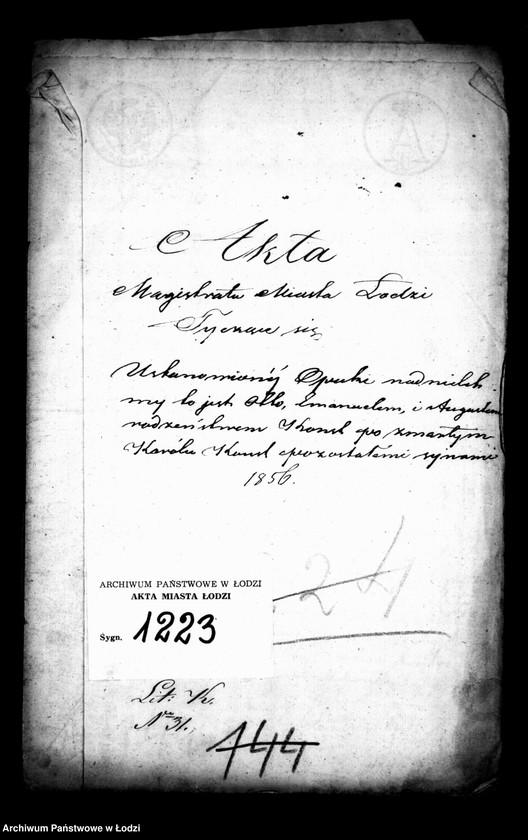 Akta
Magistratu Miasta Łodzi
Tyczące się
Ustanowionéj Opieki nad nielet
my to jest Otto, Emanuelem, i Augustem
rodzeństwem Kunst po zmarłym
Karolu Kunst pozostałemi synami
1856.
24
ARCHIWUM PAŃSTWOWE W ŁODZI
AKTA MIASTA ŁODZI
Sygn. 1223
Lit: K.
No 31.
144
Archiwum Państwowe w Łodzi